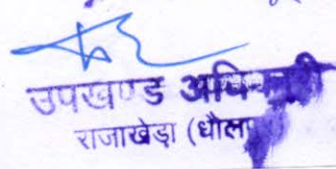 उपखण्ड अधिकारी
राजाखेड़ा (धौल